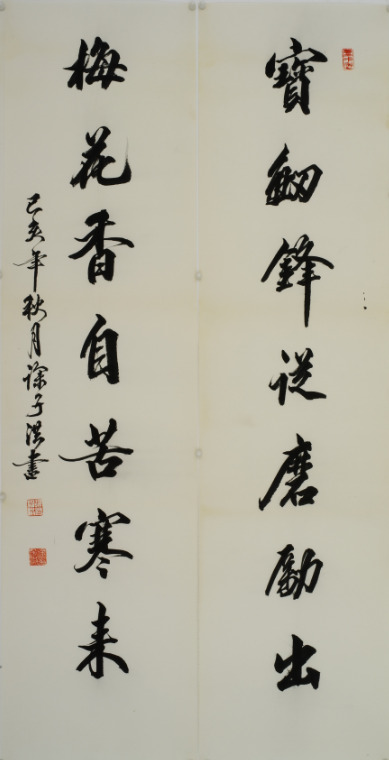 寶劒鋒從磨勵出
梅花香自苦寒来
己亥年秋月徐子洪書